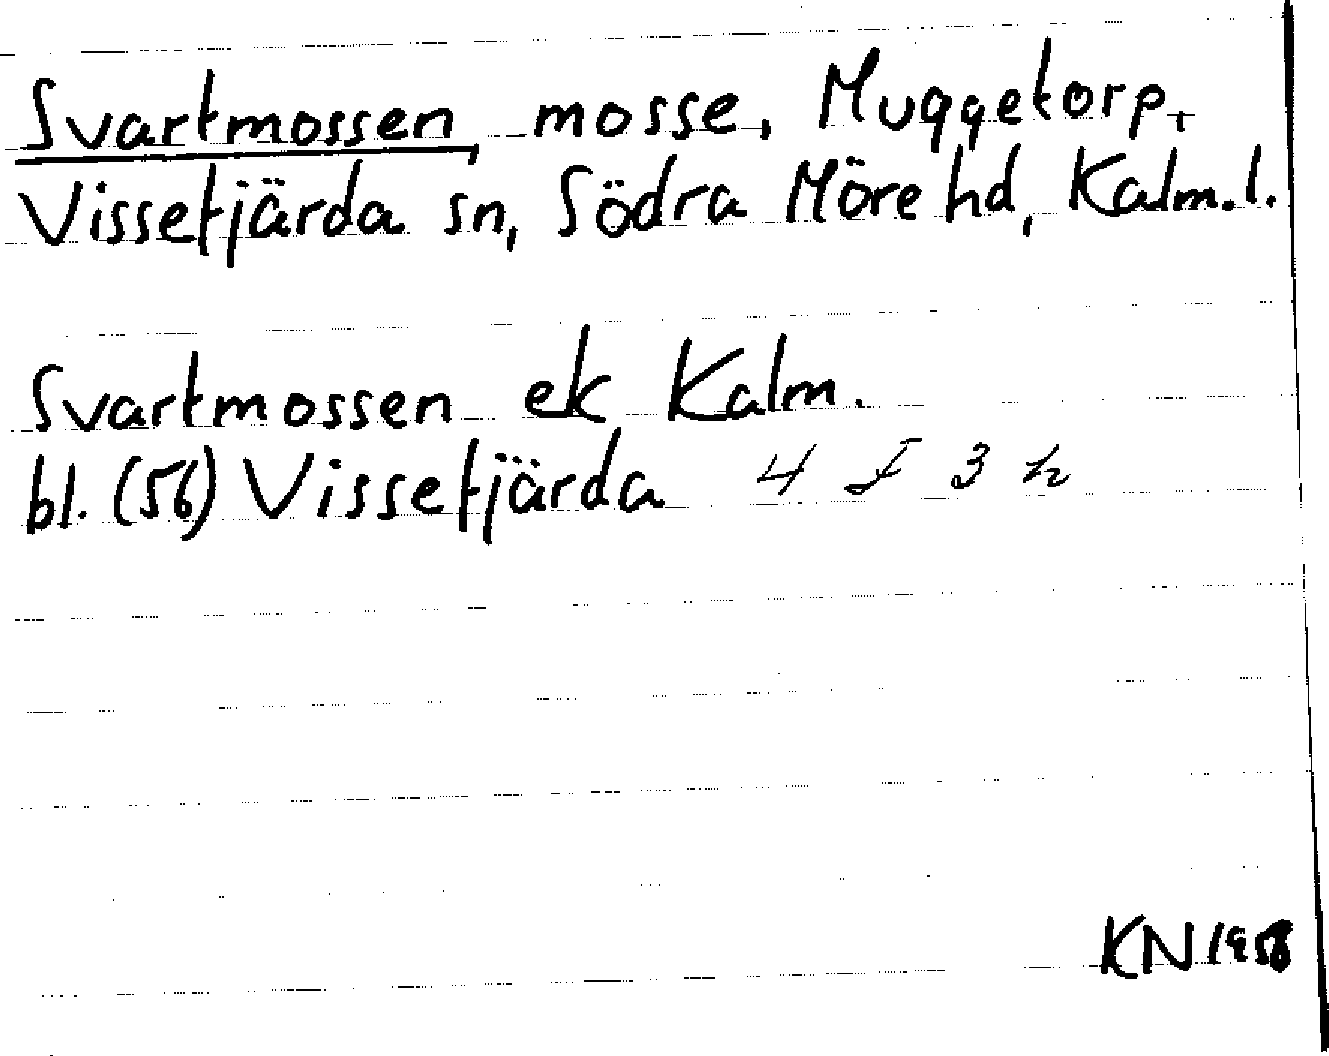 Svartmossen, mosse, Muggetorp,
Vissefjärda sn, Södra Möre hd, Kalm.l.
Svartmossen ek Kalm.
bl. (56) Vissefjärda 4 F 3 h
KN 1958